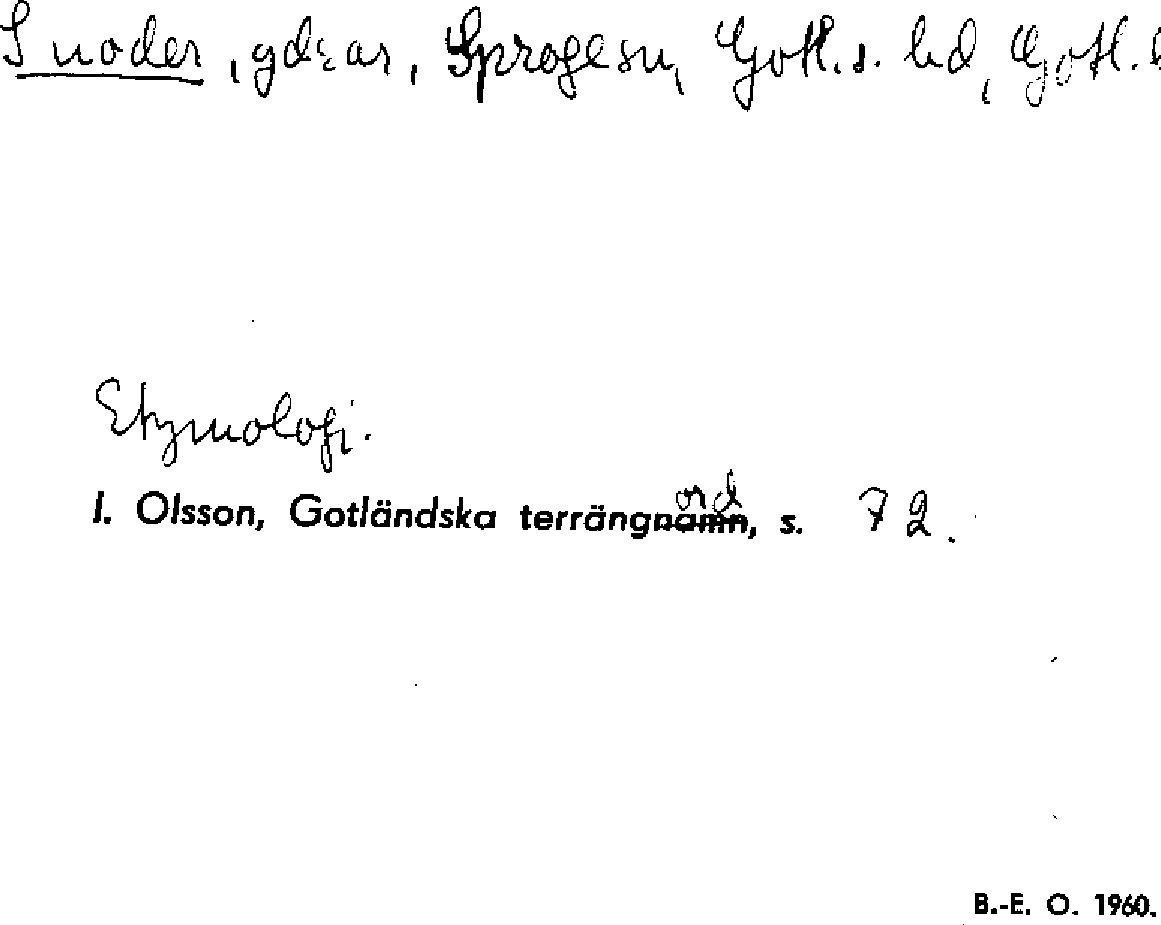 Snoder, gdar, Sproge sn, Gotl. s. hd, Gotl.
Etymologi.
I. Olsson, Gotländska terrängord, s. 72.
B.-E. O. 1960.